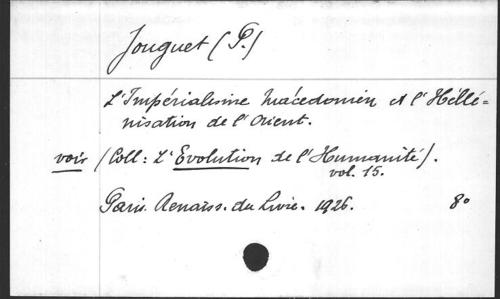 Jouguet (P.)
L'Impérialisme Macédonien et l'Hellé=
nisation de l'Orient.
voir (Coll: L'Evolution de l'Humanité).
vol. 15.
Paris. Renaiss. du Livre. 1926. 8°